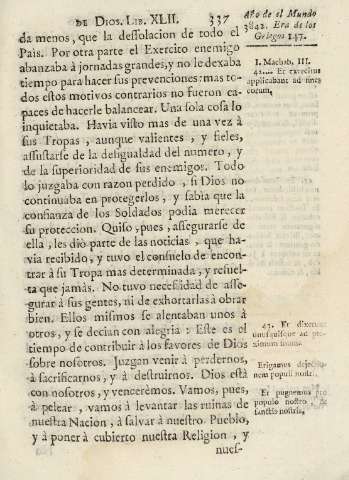 DE DIOS. LIB. XLII. 337
da menos, que la dessolacion de todo el
Pais. Por otra parte el Exercito enemigo
abanzaba à jornadas grandes, y no le dexaba
tiempo para hacer sus prevenciones: mas to-
dos estos motivos contrarios no fueron ca-
paces de hacerle balancear. Una sola cosa lo
inquietaba. Havia visto mas de una vez à
sus Tropas, aunque valientes, y fieles,
assustarse de la desigualdad del numero, y
de la superioridad de sus enemigos. Todo
lo juzgaba con razon perdido, si Dios no
continuaba en protegerlos, y sabìa que la
confianza de los Soldados podia merecer
su proteccion. Quiso, pues, assegurarse de
ella, les diò parte de las noticias, que ha-
via recibido, y tuvo el consuelo de encon-
trar à su Tropa mas determinada, y resuel-
ta que jamàs. No tuvo necessidad de asse-
gurar à sus gentes, ni de exhortarlas à obrar
bien. Ellos mismos se alentaban unos à
otros, y se decian con alegria: Este es el
tiempo de contribuir à los favores de Dios
sobre nosotros. Juzgan venir à perdernos,
à sacrificarnos, y à destruirnos. Dios està
con nosotros, y vencerèmos. Vamos, pues,
à pelear, vamos à levantar las ruinas de
nuestra Nacion, à salvar à nuestro Pueblo,
y à poner à cubierto nuestra Religion, y
nues-
Año de el Mundo
3842. Era de los
Griegos 147.
I. Machab. III.
42.... Et exercitus
applicabant ad fines
eorum,
43. Et dixerunt
unusquisque ad pro-
ximum suum:
Erigamus dejectio-
nem populi nostri,
Et pugnemus pro
populo nostro, &
sanctis nostris,